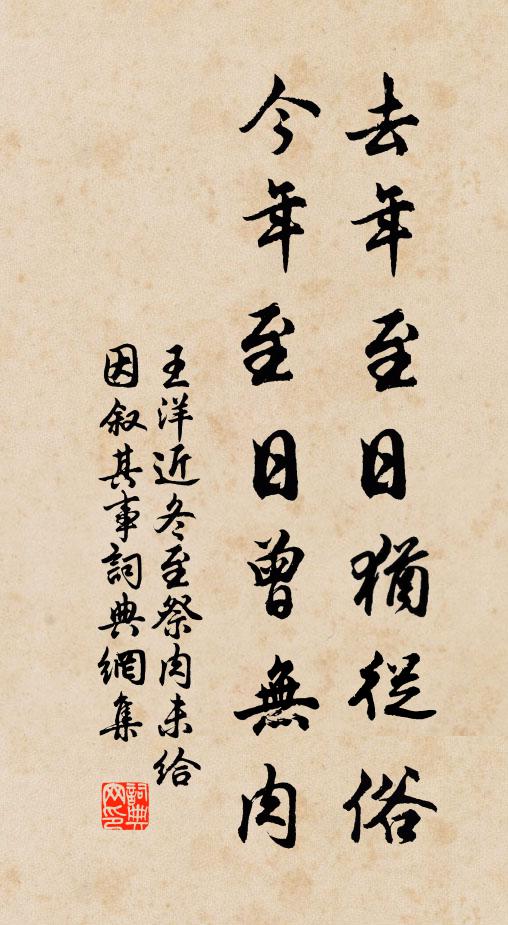 去年至日猶從俗
今年至日曾無肉
王洋近冬至祭肉未給
因叙其事詞典網集
詞典网印